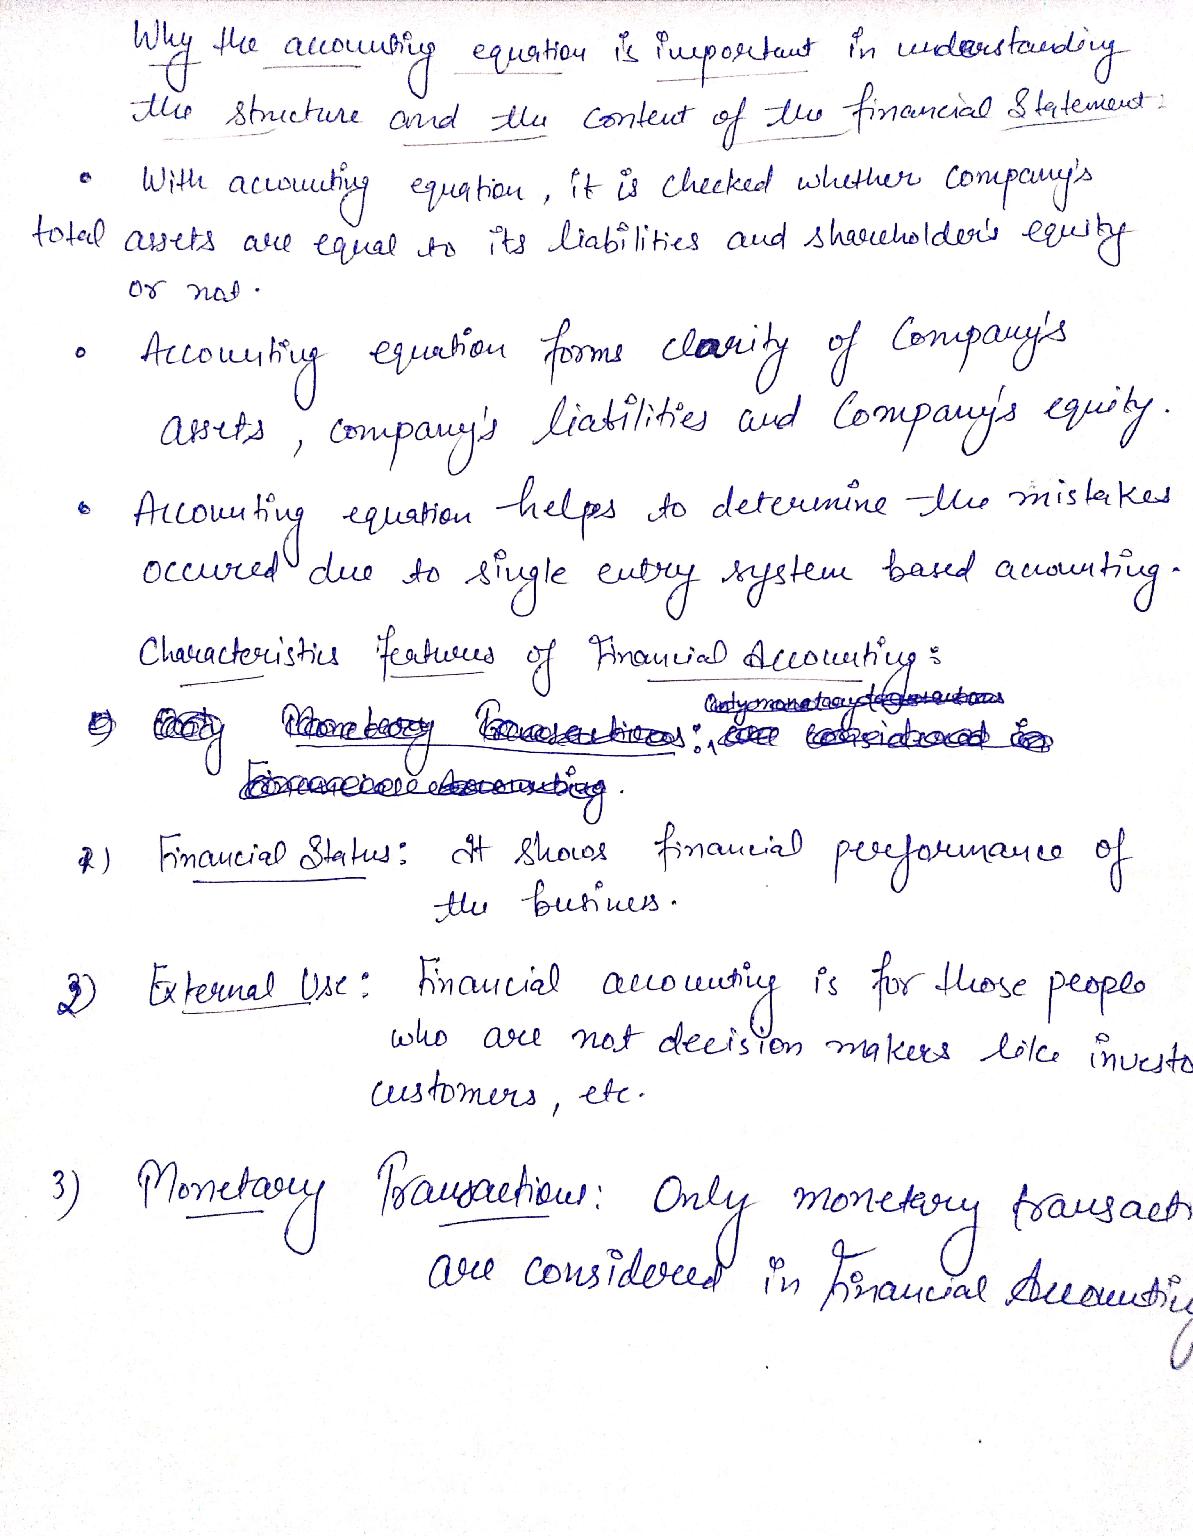 Why the accounting equation is important in understanding
the structure and the content of the financial Statement:
• With accounting equation, it is checked whether Company's
total assets are equal to its liabilities and shareholder's equity
or not.
• Accounting equation forms clarity of Company's
assets, company's liabilities and Company's equity.
• Accounting equation helps to determine the mistakes
occured due to single entry system based accounting.
Characteristics features of Financial Accounting:
only monetary transactions
Only Monetary Transactions: are considered in
Financial Accounting.
1) Financial Status: It shows financial performance of
the business.
2) External Use: Financial accounting is for those people
who are not decision makers like investo
customers, etc.
3) Monetary Transactions: Only monetary transacti
are considered in Financial Accounting